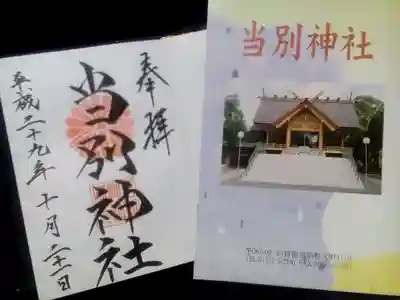 奉拝
当別神社
平成二十九年十月二十一日
当別神社